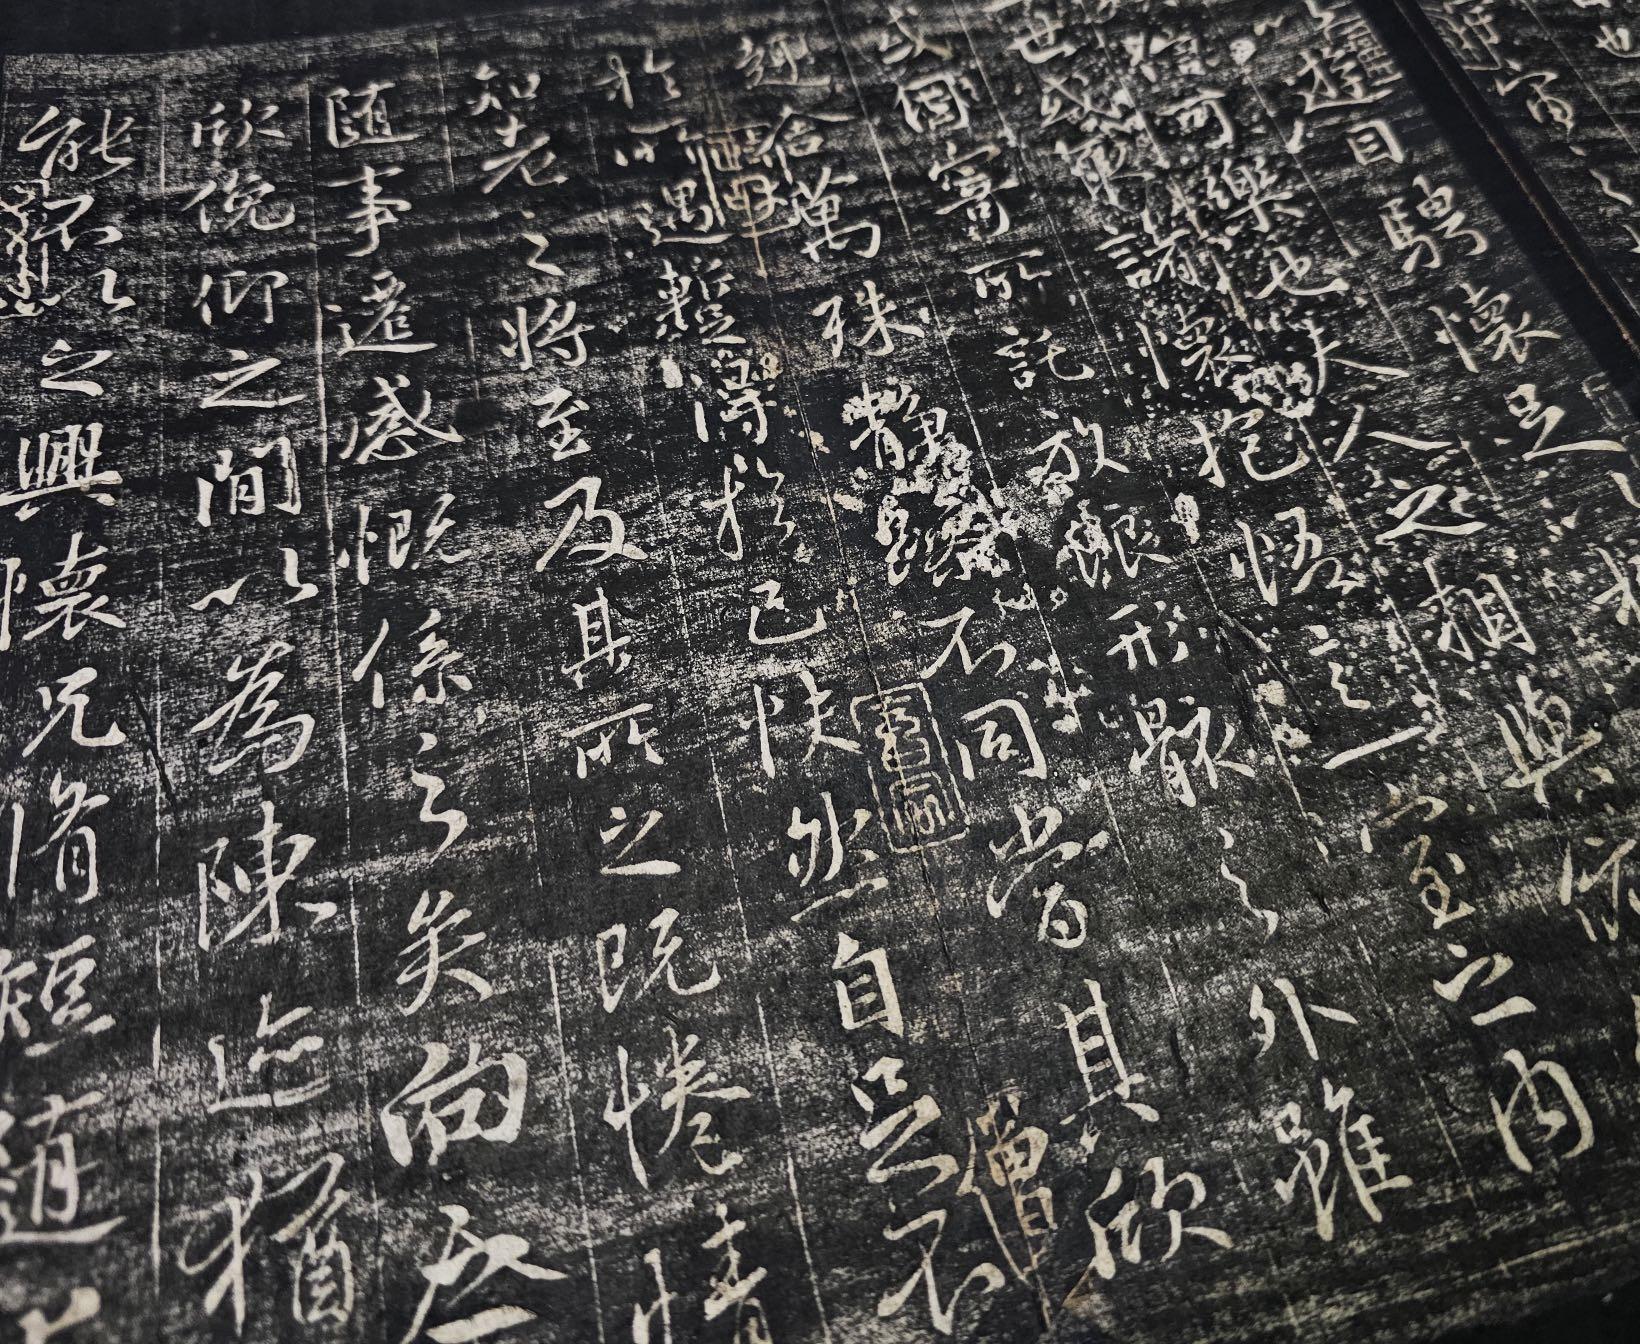 也
宇之
遊目騁懷足以
信可樂也夫人之相與俯
世或取諸懷抱悟言一室之內
或因寄所託放浪形骸之外雖
趣舍萬殊靜躁不同當其欣
僧
於所遇暫得於己快然自足不
知老之將至及其所之既惓情
隨事遷感慨係之矣向之
欣俛仰之閒以為陳迹猶
能不以之興懷况脩短隨